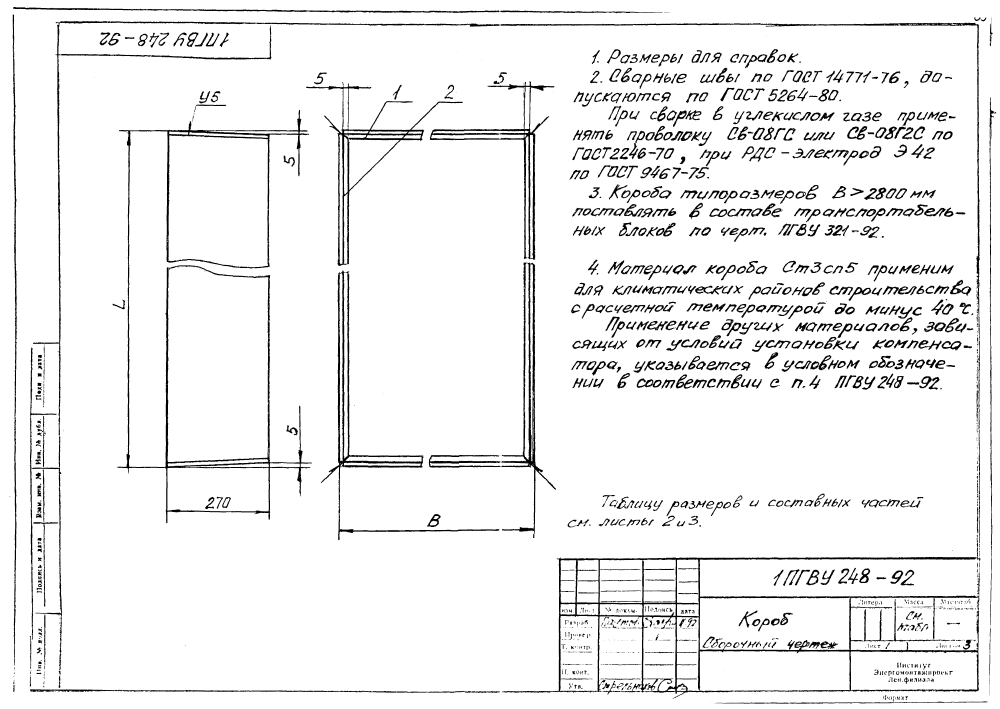 1ПГВУ 248-92
У5
5
5
1
2
5
5
L
270
В
1. Размеры для справок.
2. Сварные швы по ГОСТ 14771-76, до-
пускаются по ГОСТ 5264-80.
При сварке в углекислом газе приме-
нять проволоку Св-08ГС или Св-08Г2С по
ГОСТ2246-70, при РДС-электрод Э42
по ГОСТ 9467-75.
3. Короба типоразмеров В>2800мм
поставлять в составе транспортабель-
ных блоков по черт. ПГВУ 321-92.
4. Материал короба Ст3сп5 применим
для климатических районов строительства
с расчетной температурой до минус 40°С.
Применение других материалов, зави-
сящих от условий установки компенса-
тора, указывается в условном обозначе-
нии в соответствии с п.4 ПГВУ 248-92.
Таблицу размеров и составных частей
см. листы 2 и 3.
Подп и дата
Инв. № дубл.
Взам. инв. №
Подпись и дата
Инв. № подл.
1ПГВУ 248-92
изм. Лист № докум. Подпись дата
Разраб.
Провер.
Т. контр.
Н. конт.
Утв.
Короб
Сборочный чертеж
Литера Масса Масштаб
См. табл. —
Лист 1 Листов 3
Институт
Энергомонтажпроект
Лен.филиал
Формат